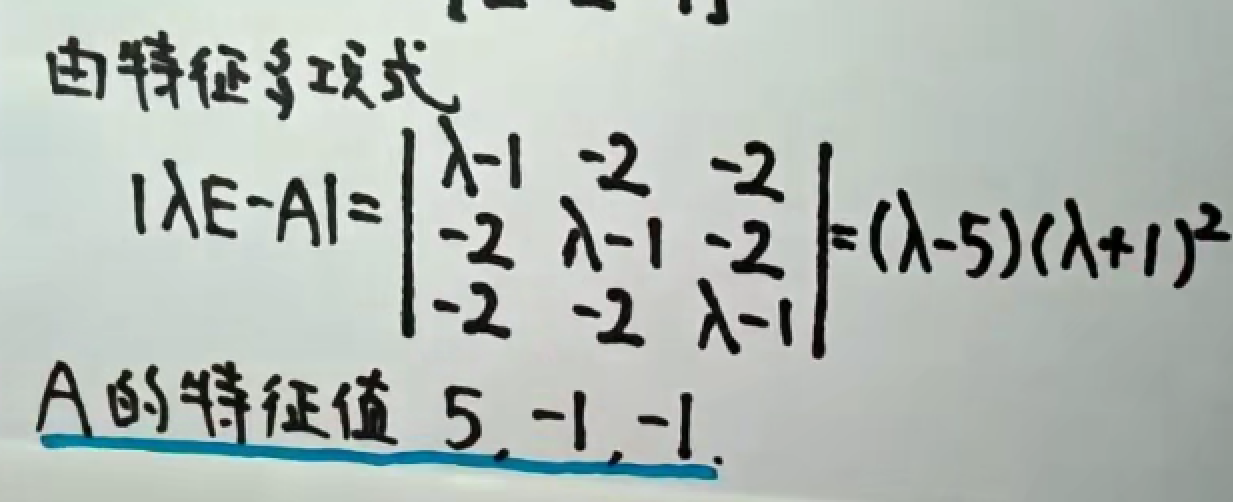 由特征多项式
|λE-A|=
λ-1 -2 -2
-2 λ-1 -2
-2 -2 λ-1
=(λ-5)(λ+1)²
A的特征值 5,-1,-1.